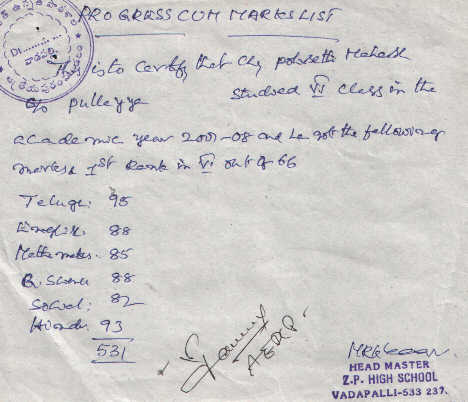 PROGRESS CUM MARKS LIST
This is to Certify that Chy Mahesh
S/o pulleyya studied VI class in the
academic year 2007-08 and he got the following
marks & 1st Rank in VI out of 66
Telugu: 95
English: 88
Mathematics: 85
G. Science 88
Social: 82
Hindi: 93
531
HEAD MASTER
Z.P. HIGH SCHOOL
VADAPALLI-533 237.